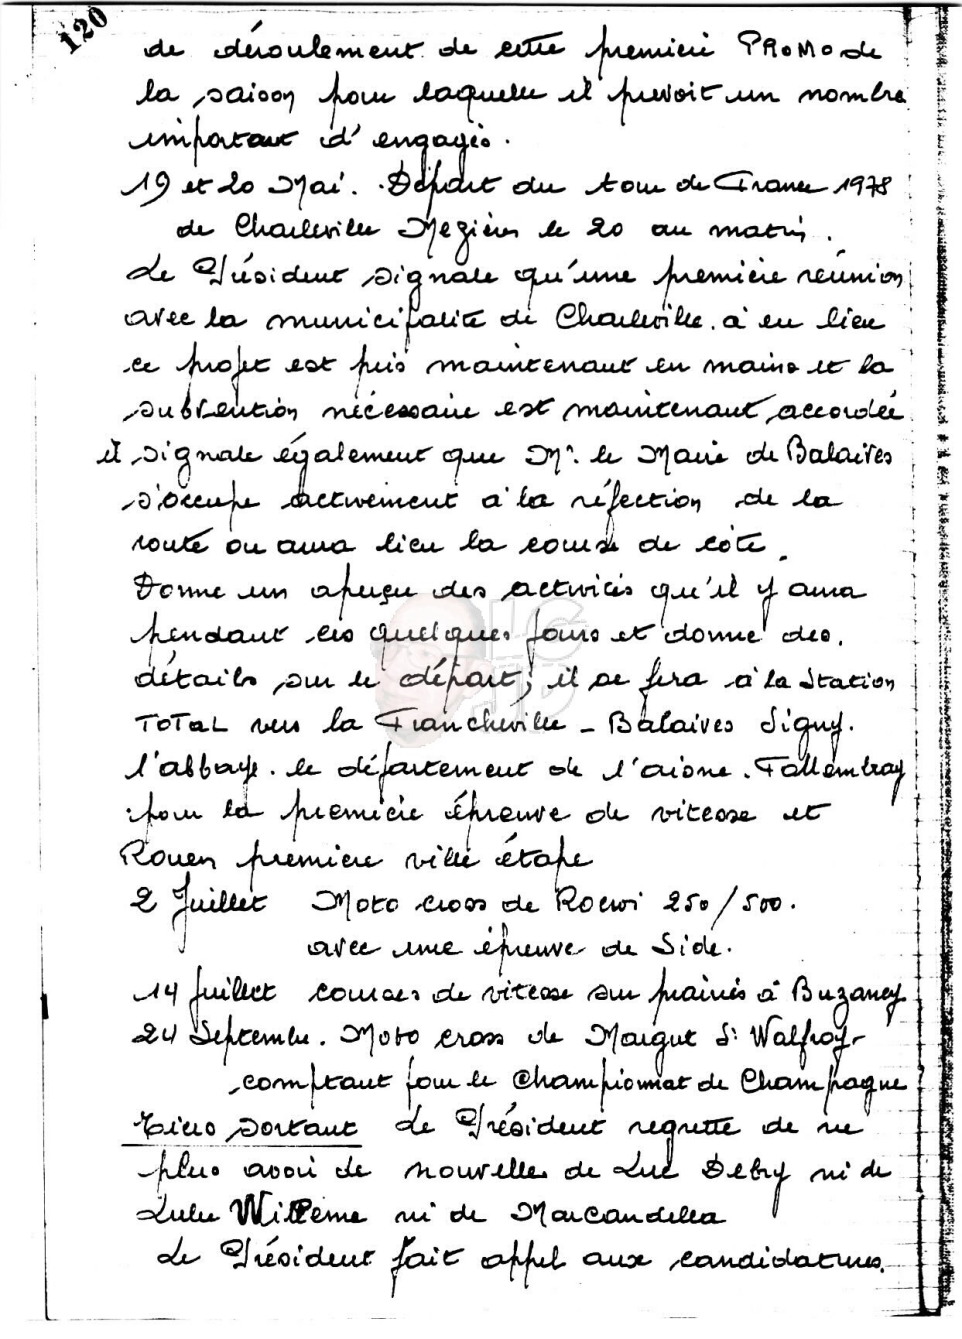 120
de déroulement de cette première PROMO de
la saison pour laquelle il prévoit un nombre
important d'engagés.
19 et 20 Mai. Départ du tour de France 1978
de Charleville Mezières le 20 au matin.
Le Président signale qu'une première réunion
avec la municipalité de Charleville. a eu lieu
ce projet est pris maintenant en mains et la
subvention nécessaire est maintenant accordée
il signale également que Mr. le Maire de Balaives
s'occupe activement à la réfection de la
route ou aura lieu la course de côte.
Donne un aperçu des activités qu'il y aura
pendant ces quelques jours et donne des
détails sur le départ; il se fera à la Station
TOTAL vers la Francheville - Balaives Signy.
l'abbaye. le département de l'aisne. Follembray
pour la première épreuve de vitesse et
Rouen première ville étape
2 Juillet Moto cross de Rocroi 250/500.
avec une épreuve de Side.
14 juillet courses de vitesse sur prairies à Buzancy
24 Septembre. Moto cross de Margut St Walfroy-
comptant pour le championnat de Champagne
Tiers sortant Le Président regrette de ne
plus avoir de nouvelles de Luc Debry ni de
Lulu Willeme ni de Marcandella
Le Président fait appel aux candidatures.
LG
JP